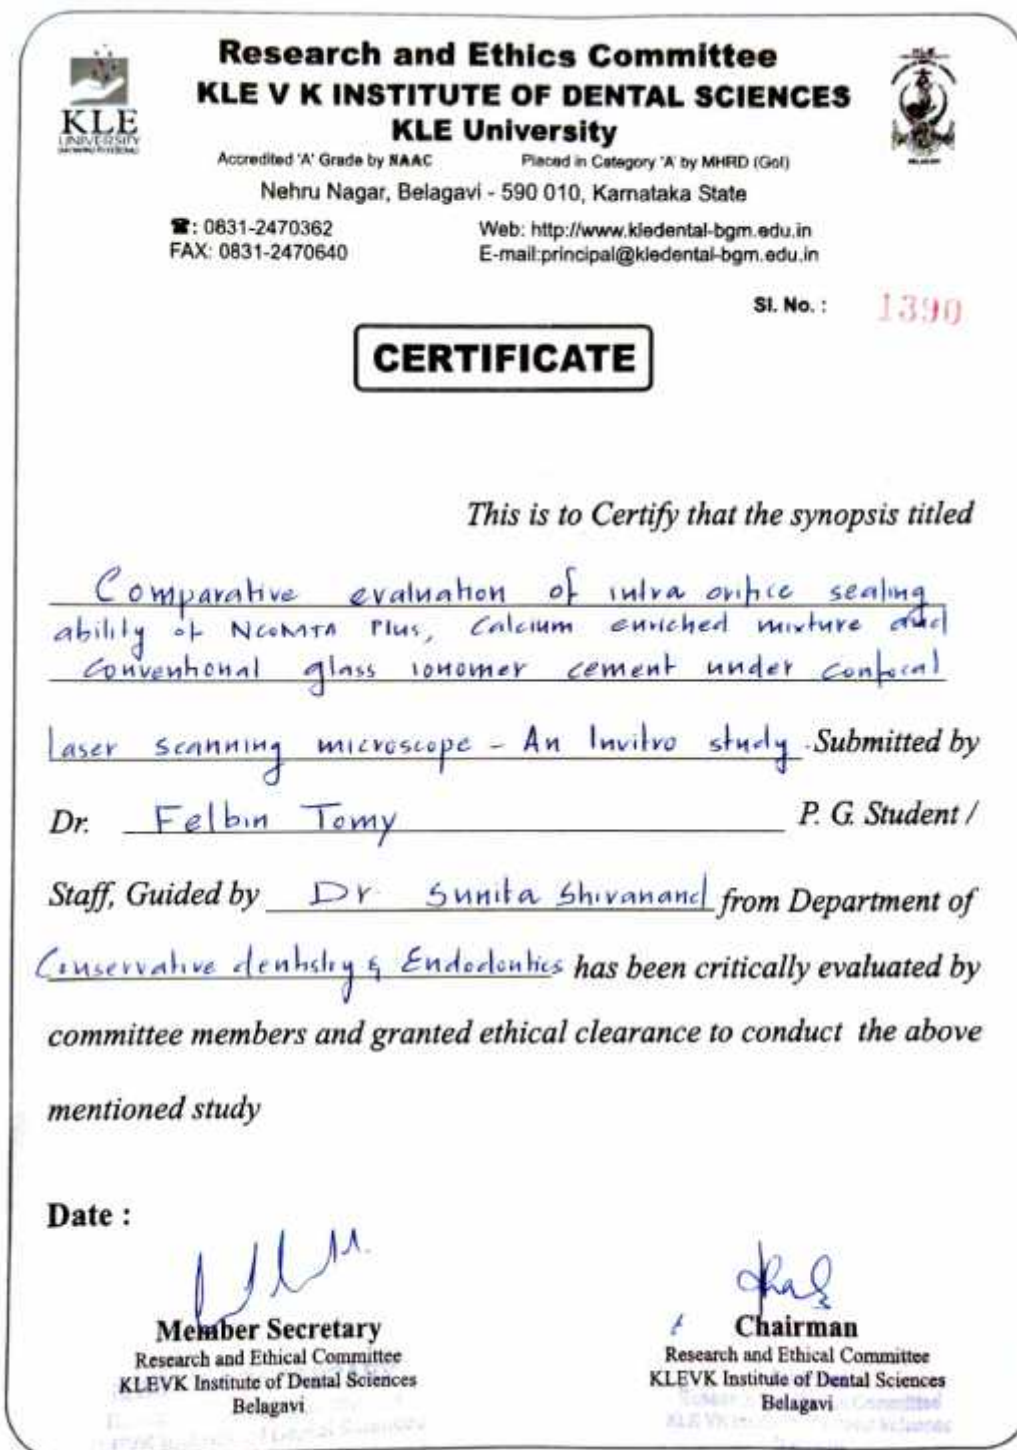 Research and Ethics Committee
KLE V K INSTITUTE OF DENTAL SCIENCES
KLE University
KLE
UNIVERSITY
Accredited 'A' Grade by NAAC Placed in Category 'A' by MHRD (GoI)
Nehru Nagar, Belagavi - 590 010, Karnataka State
☎: 0831-2470362 Web: http://www.kledental-bgm.edu.in
FAX: 0831-2470640 E-mail:principal@kledental-bgm.edu.in
Sl. No. : 1390
CERTIFICATE
This is to Certify that the synopsis titled
Comparative evaluation of intra orifice sealing
ability of NeoMTA Plus, Calcium enriched mixture and
Conventional glass ionomer cement under confocal
laser scanning microscope - An Invitro study. Submitted by
Dr. Felbin Tomy P. G. Student /
Staff, Guided by Dr. Sunita Shivanand from Department of
Conservative dentistry & Endodontics has been critically evaluated by
committee members and granted ethical clearance to conduct the above
mentioned study
Date :
Member Secretary
Research and Ethical Committee
KLEVK Institute of Dental Sciences
Belagavi
Chairman
Research and Ethical Committee
KLEVK Institute of Dental Sciences
Belagavi